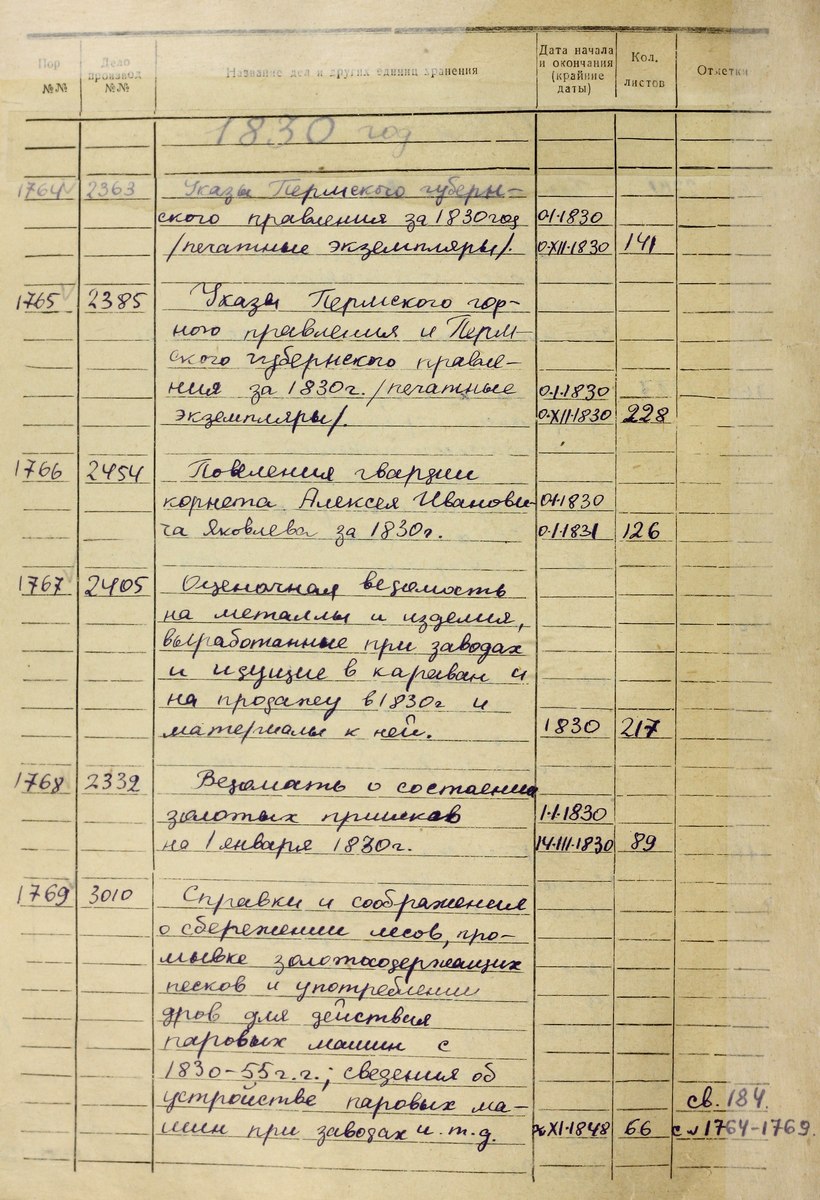 Пор №№ Дело производ №№ Название дел и других единиц хранения Дата начала и окончания (крайние даты) Кол. листов Отметки
1830 год
1764 2363 Указы Пермского губерн-
ского правления за 1830 год 0.I.1830
/печатные экземпляры/. 0.XII.1830 141
1765 2385 Указы Пермского гор-
ного правления и Перм-
ского губернского правле-
ния за 1830г. /печатные 0.I.1830
экземпляры/. 0.XII.1830 228
1766 2454 Повеления гвардии
корнета Алексея Иванови- 0.I.1830
ча Яковлева за 1830г. 0.I.1831 126
1767 2405 Оценочная ведомость
на металлы и изделия,
выработанные при заводах
и идущие в караван и
на продажу в 1830г и
материалы к ней. 1830 217
1768 2332 Ведомать о состаении
золотых приисков 1.I.1830
на 1 января 1830г. 14.III.1830 89
1769 3010 Справки и соображения
о сбережении лесов, про-
мывке золотосодержащих
песков и употреблении
дров для действия
паровых машин с
1830-55г.г.; сведения об
устройстве паровых ма- св. 184.
шин при заводах и.т.д. XI.1848 66 с 1764-1769.